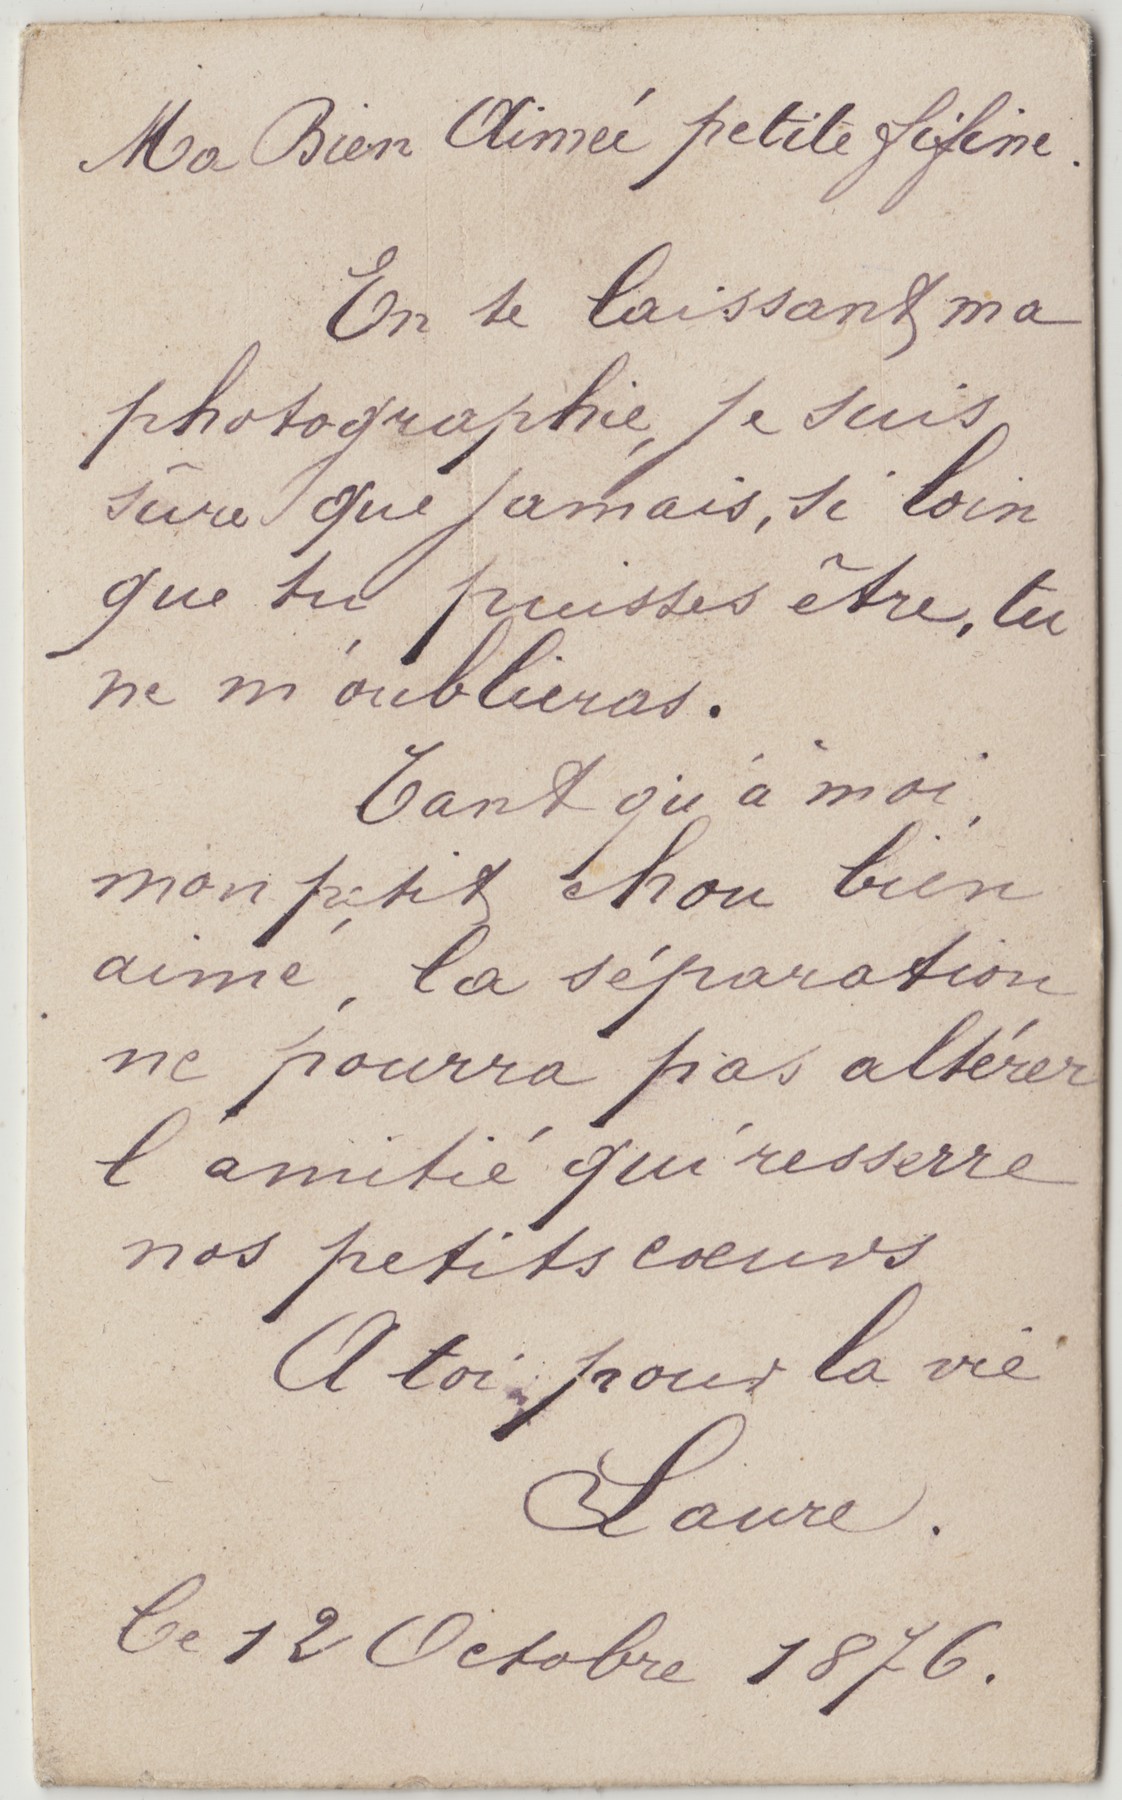 Ma Bien Aimée petite fifine.
En te laissant ma
photographie, je suis
sûre que jamais, si loin
que tu puisses être, tu
ne m'oublieras.
Tant qu'à moi,
mon petit chou bien
aimé, la séparation
ne pourra pas altérer
l'amitié qui resserre
nos petits cœurs
A toi pour la vie
Laure.
Ce 12 Octobre 1876.